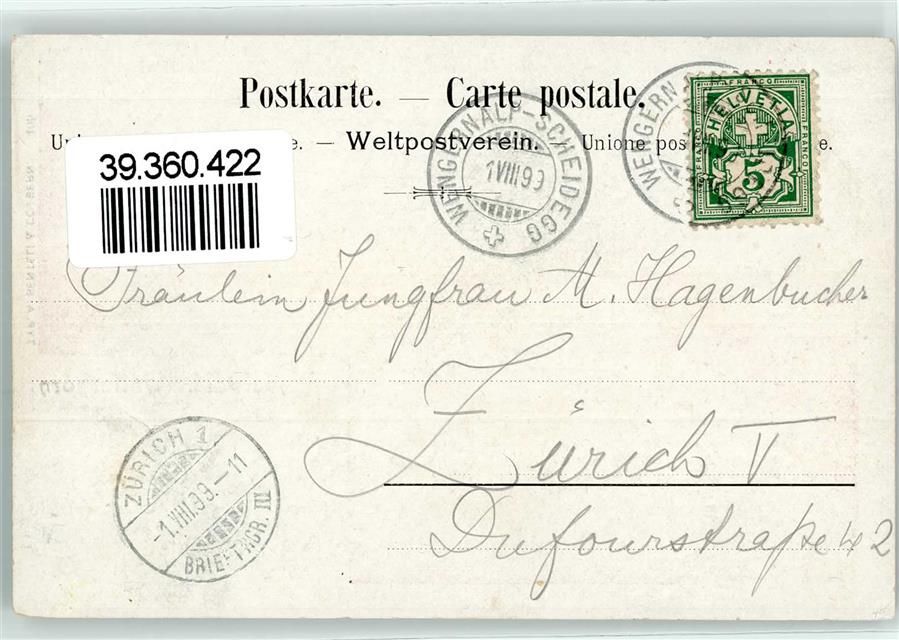 Postkarte. — Carte postale.
e. — Weltpostverein. — Unione pos e.
39.360.422
WENGERNALP-SCHEIDEGG
1 VIII 99
WENGERN
FRANCO
HELVETIA
FRANCO
FRANCO
5
Fräulein Jungfrau M. Hagenbucher
Zürich V
Dufourstraße 42
ZÜRICH 1
-1.VIII.99.-11
BRIEFTRGR. III